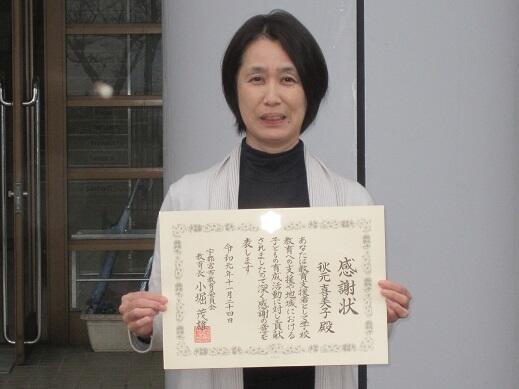 感謝状
秋元喜美子殿
あなたは教育支援者として学校
教育への支援や地域における
子どもの育成活動に対し貢献
されましたので深く感謝の意を
表します
令和元年十一月二十四日
宇都宮市教育委員会
教育長 小堀茂雄